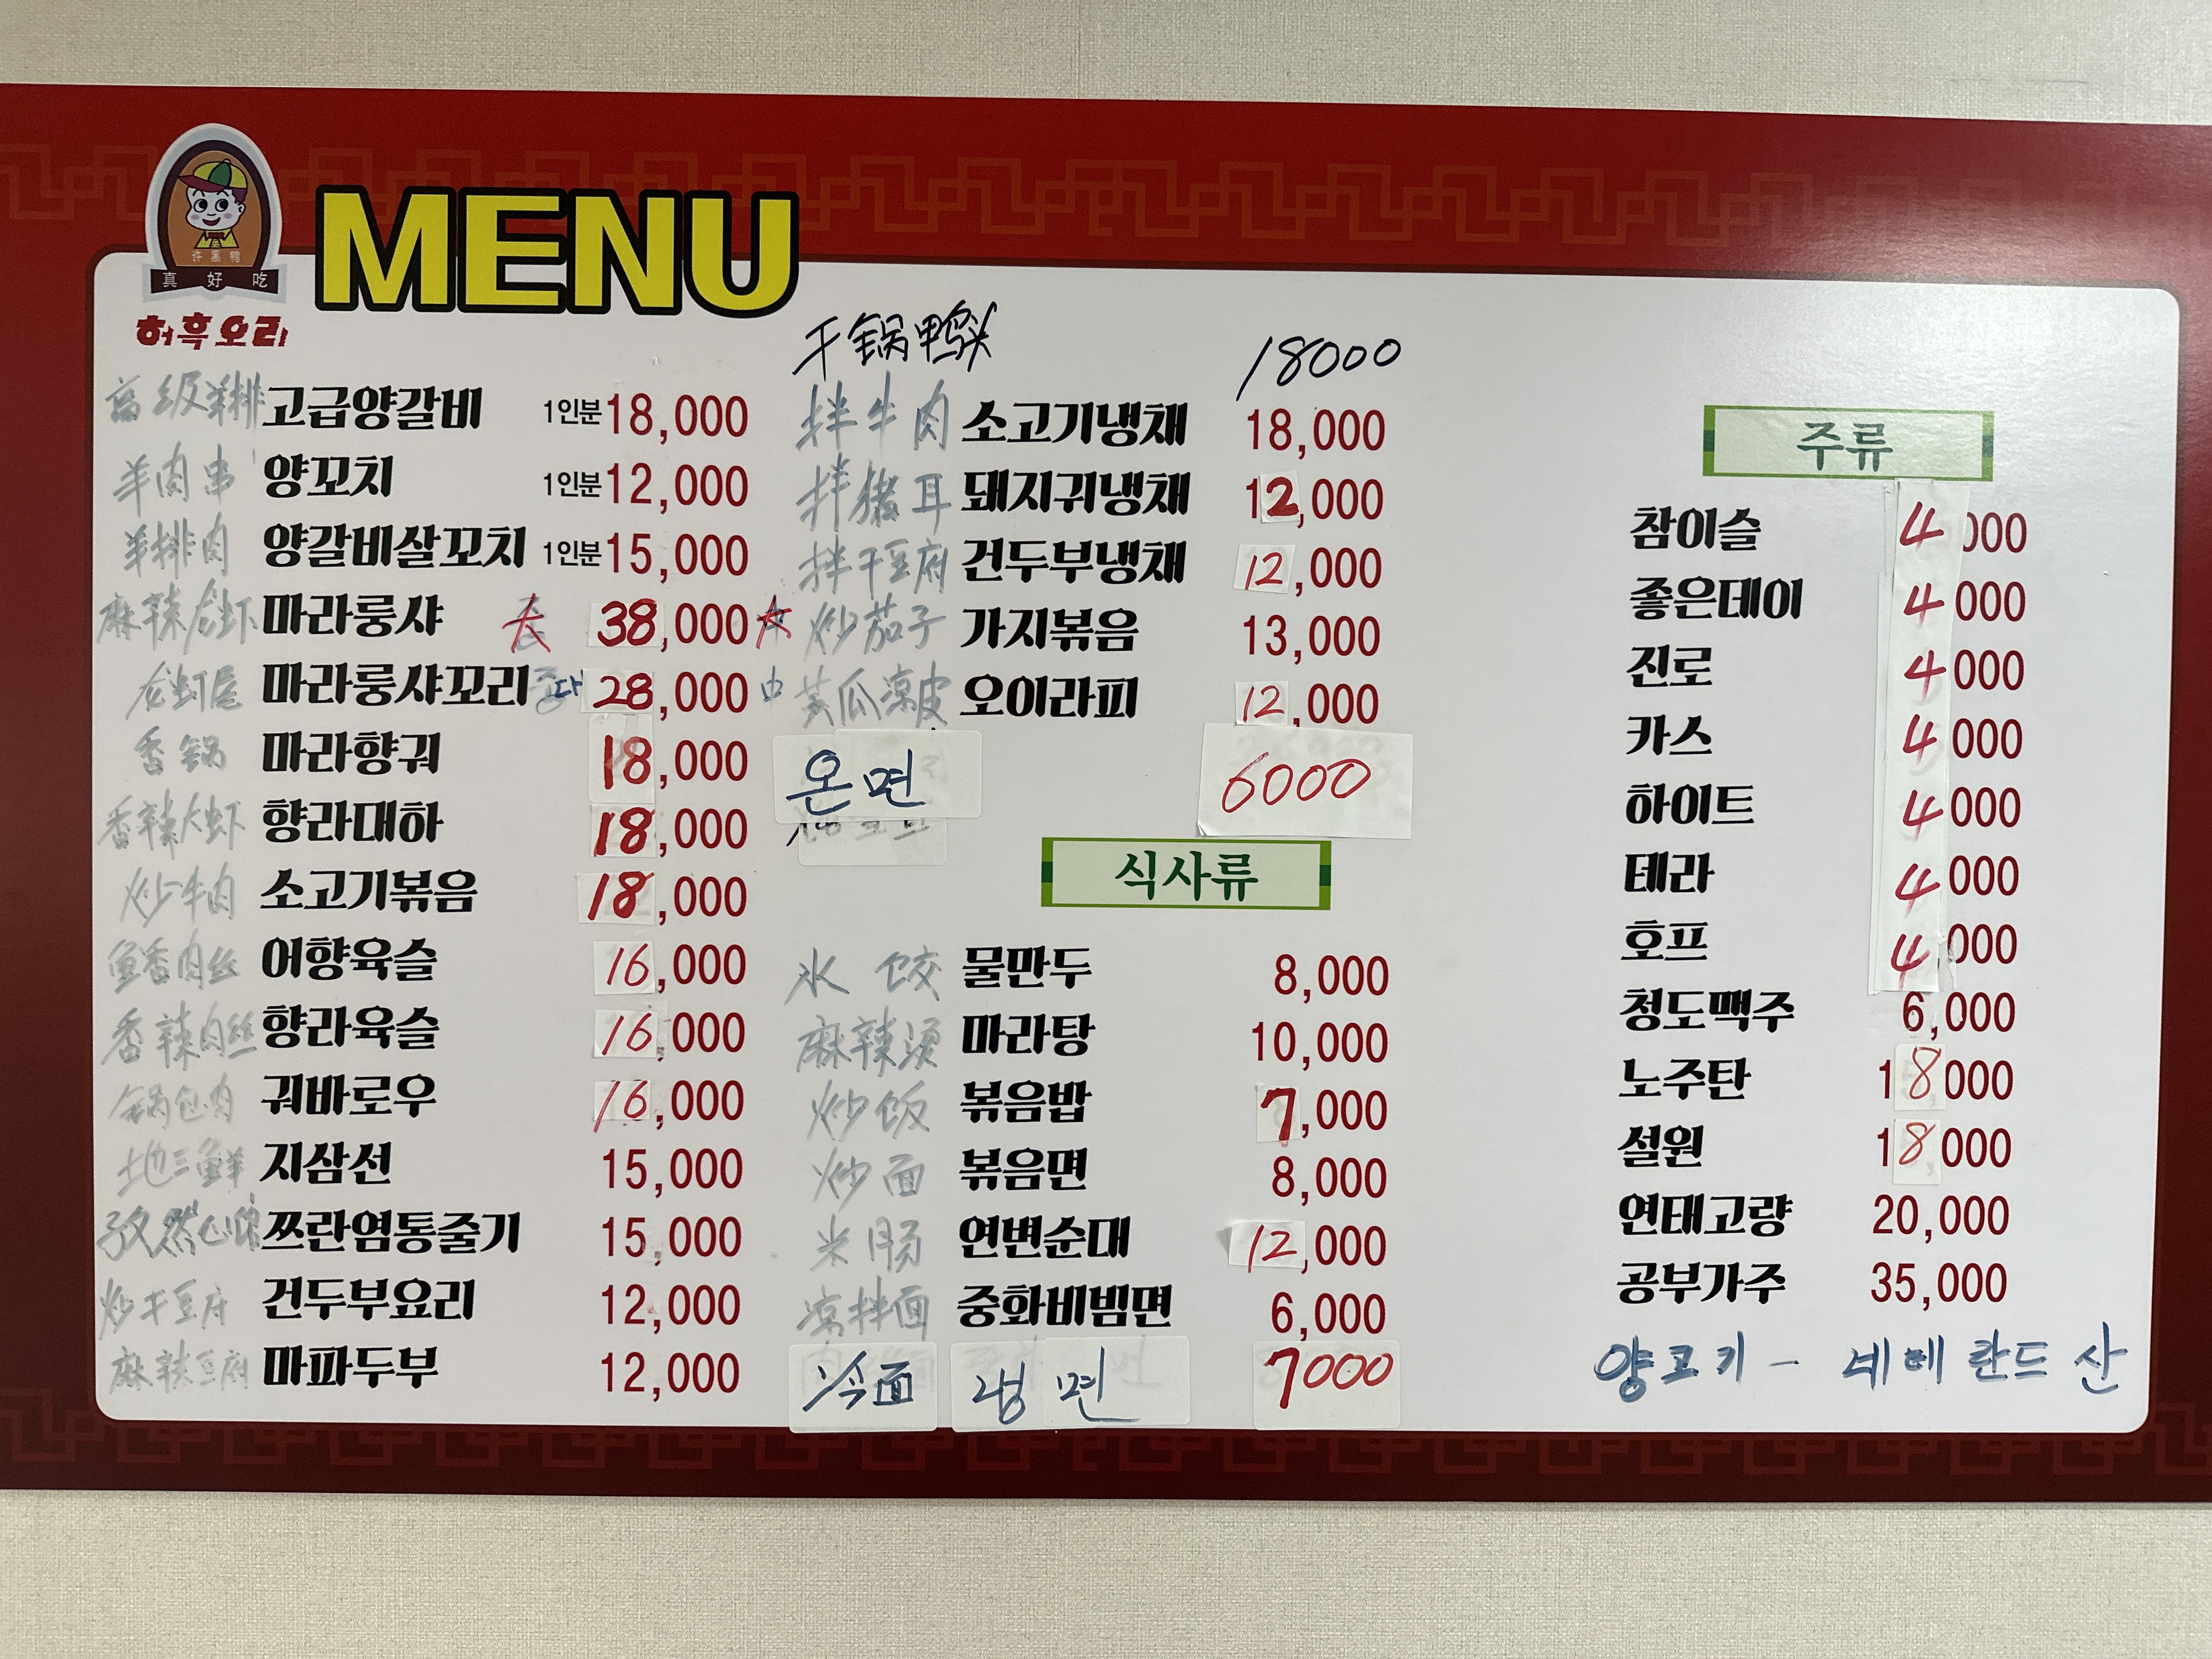 许黑鸭
真好吃
허흑오리
MENU
高级羊排 고급양갈비 1인분 18,000
羊肉串 양꼬치 1인분 12,000
羊排肉 양갈비살꼬치 1인분 15,000
麻辣龙虾 마라룽샤 大 38,000 大
龙虾尾 마라룽샤꼬리 28,000 中
香锅 마라향궈 18,000
香辣大虾 향라대하 18,000
炒牛肉 소고기볶음 18,000
鱼香肉丝 어향육슬 16,000
香辣肉丝 향라육슬 16,000
锅包肉 궈바로우 16,000
地三鲜 지삼선 15,000
孜然心管 쯔란염통줄기 15,000
炒干豆府 건두부요리 12,000
麻辣豆府 마파두부 12,000
干锅鸭头 18000
拌牛肉 소고기냉채 18,000
拌猪耳 돼지귀냉채 12,000
拌干豆府 건두부냉채 12,000
炒茄子 가지볶음 13,000
黄瓜凉皮 오이라피 12,000
온면 6000
식사류
水饺 물만두 8,000
麻辣烫 마라탕 10,000
炒饭 볶음밥 7,000
炒面 볶음면 8,000
米肠 연변순대 12,000
凉拌面 중화비빔면 6,000
冷面 냉면 7000
주류
참이슬 4000
좋은데이 4000
진로 4000
카스 4000
하이트 4000
테라 4000
호프 4,000
청도맥주 6,000
노주탄 18000
설원 18000
연태고량 20,000
공부가주 35,000
양코키 - 네베란드산